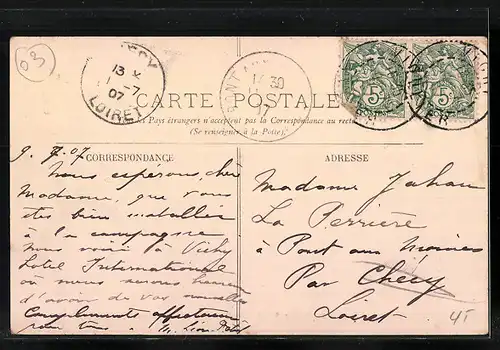 03
CHÉCY
13 K
-7
07
LOIRET
14 30
CARTE POSTALE
les Pays étrangers n'acceptent pas la Correspondance au recto
(Se renseigner à la Poste).
5 5
CORRESPONDANCE
ADRESSE
9. 7. 07
Nous espérons, chère
Madame, que vous
êtes bien installée
à la campagne
nous voici à Vichy
hotel International
où nous serons heureux
d'avoir de vos nouvelles
Compliments affectueux
pour tous
Madame Jahan
La Perrière
à Pont aux Moines
Par Chécy
Loiret
45